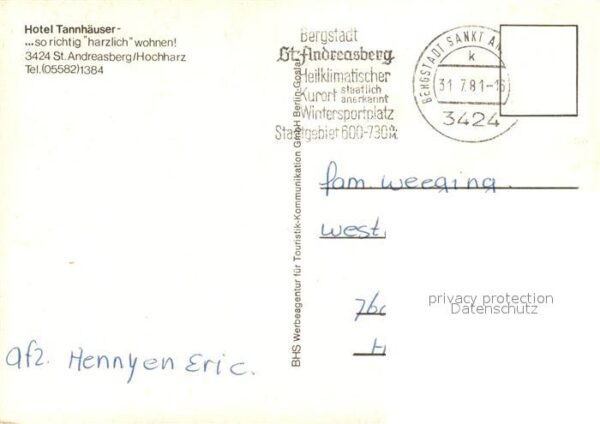 Hotel Tannhäuser-
...so richtig "harzlich" wohnen!
3424 St. Andreasberg/Hochharz
Tel. (05582) 1384
Bergstadt
St. Andreasberg
Heilklimatischer
Kurort staatlich anerkannt
Wintersportplatz
Stadtgebiet 600-730 m
BERGSTADT SANKT AN
k
31.7.81-16
3424
BHS Werbeagentur für Touristik-Kommunikation GmbH Berlin-Goslar
fam. Weeging.
West.
760
H
privacy protection
Datenschutz
afz. Henny en Eric.